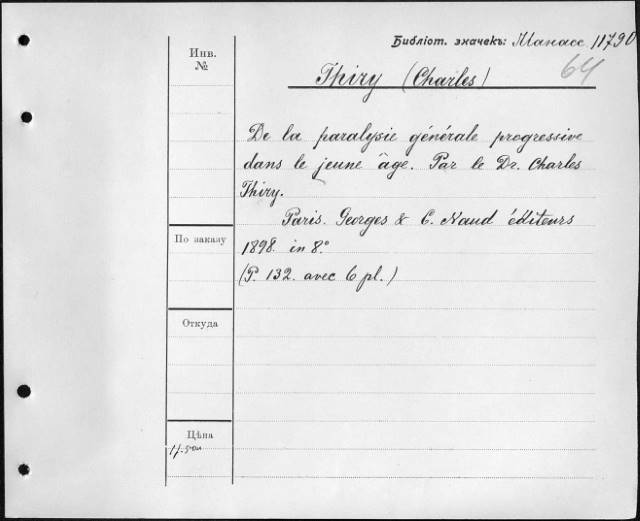 Библіот. значекъ: Манасс 11790
64
Инв.
№
Thiry (Charles)
De la paralysie générale progressive
dans le jeune âge. Par le Dr. Charles
Thiry.
Paris. Georges & C. Naud éditeurs
1898. in 8.º
(P. 132. avec 6 pl.)
По заказу
Откуда
Цѣна